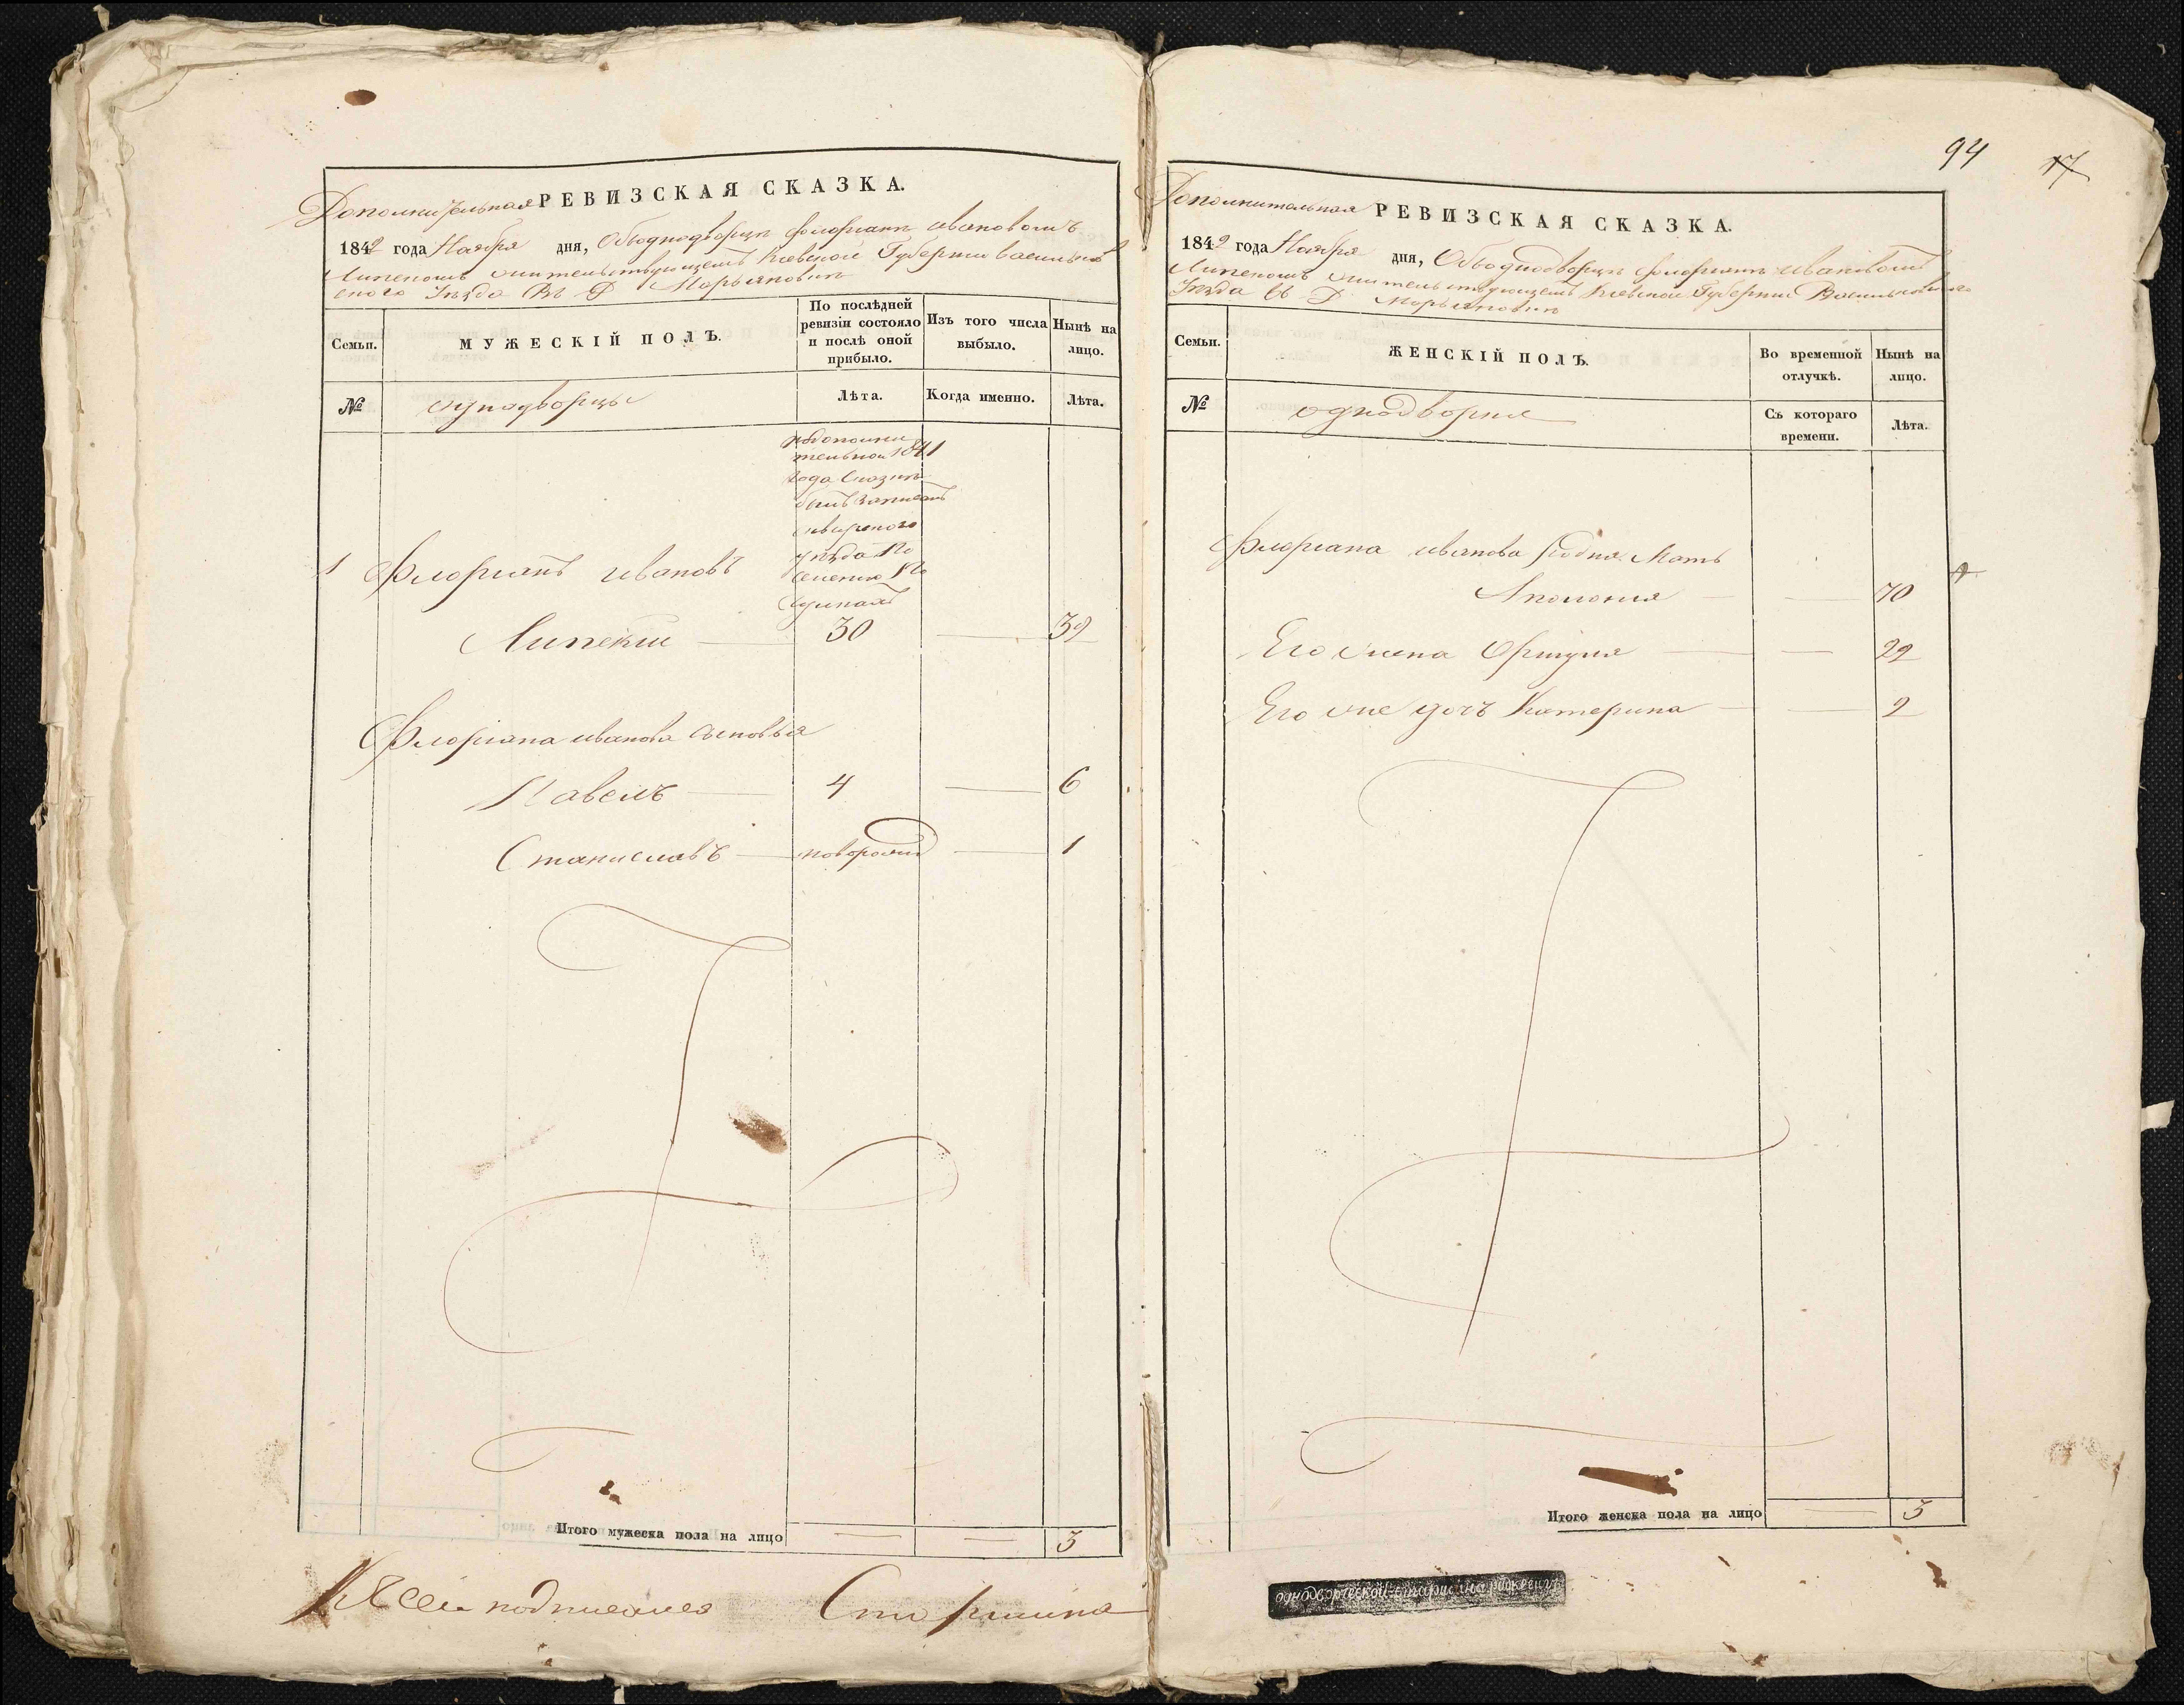 Дополнительная РЕВИЗСКАЯ СКАЗКА.
1842 года Ноября дня, Объ однодворцѣ Флориянѣ Ивановомъ
Липскомъ жительствующемъ Кіевской Губерніи Васильков
ского Уѣзда Въ Д Марьяновкѣ
Семьи.
МУЖЕСКІЙ ПОЛЪ.
По послѣдней ревизіи состояло и послѣ оной прибыло.
Изъ того числа выбыло.
Нынѣ на лицо.
№
однодворцы
Лѣта.
Когда именно.
Лѣта.
подополни
тельной 1841
года Сказкѣ
былъ записанъ
сквирского
уѣзда По
селенію
1 Флоріанъ Ивановъ
Липскій 30 32
Флоріана Иванова сыновья
Павелъ 4 6
Станиславъ новорожд 1
Итого мужеска пола на лицо 3
К сей подписался Старшина
94
17
Дополнительная РЕВИЗСКАЯ СКАЗКА.
1842 года Ноября дня, Объ однодворцѣ Флориянѣ Ивановомъ
Липскомъ жительствующемъ Кіевской Губерніи Васильковского
Уѣзда въ Д Марьяновкѣ
Семьи.
ЖЕНСКІЙ ПОЛЪ.
Во временной отлучкѣ.
Нынѣ на лицо.
№
однодворки
Съ котораго времени.
Лѣта.
Флоріана Иванова родна Мать
Аполонія 70
Его жена 22
Его же дочь Катерина 2
Итого женска пола на лицо 3
однодворческой старшина